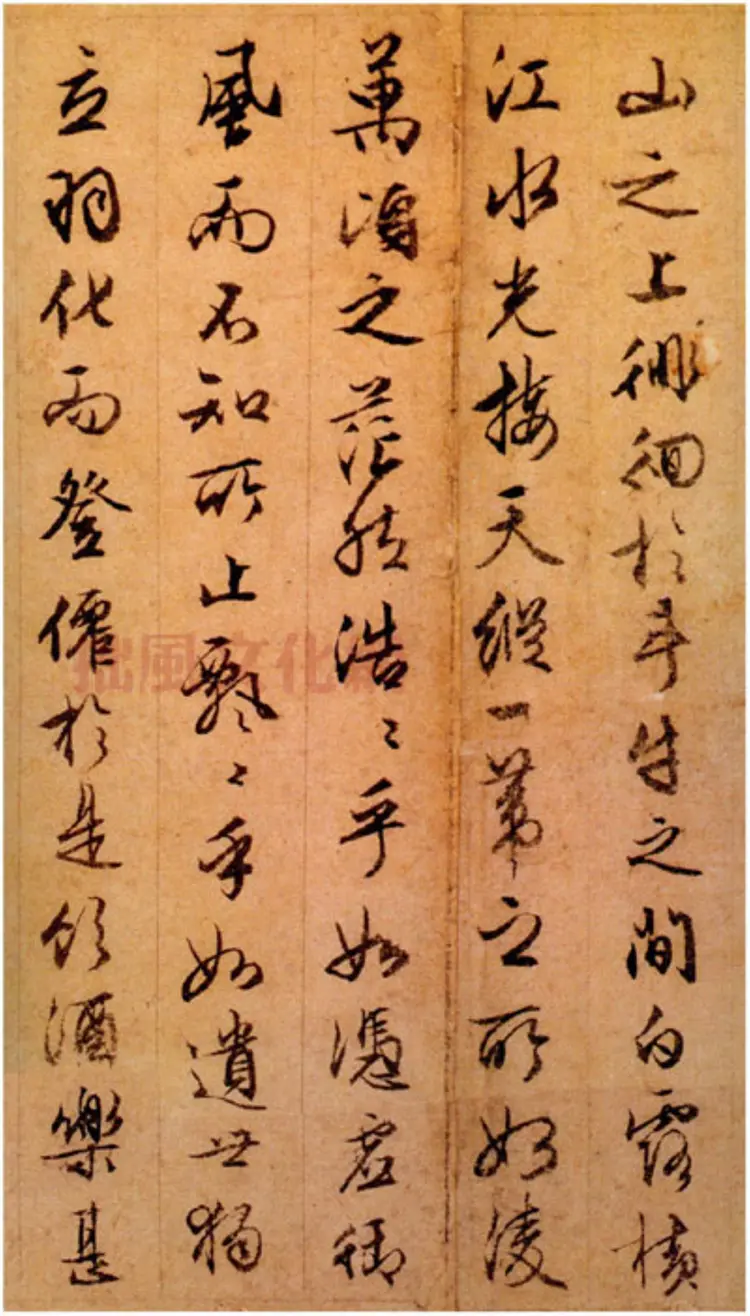 山之上徘徊於斗牛之間白露横
江水光接天縱一葦之所如凌
萬頃之茫然浩〻乎如憑虚御
風而不知所止飄〻乎如遺世獨
立羽化而登僊於是飲酒樂甚
拙風文化